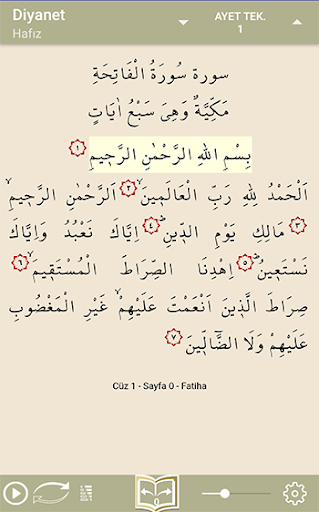 Diyanet
Hafız
AYET TEK.
1
سورة سُورَةُ الْفَاتِحَةِ
مَكِّيَّةٌ وَهِىَ سَبْعُ اٰيَاتٍ
بِسْمِ اللهِ الرَّحْمٰنِ الرَّح۪يمِ ﴿١﴾
اَلْحَمْدُ لِلّٰهِ رَبِّ الْعَالَم۪ينَۙ ﴿٢﴾ اَلرَّحْمٰنِ الرَّح۪يمِۙ
﴿٣﴾ مَالِكِ يَوْمِ الدّ۪ينِۜ ﴿٤﴾ اِيَّاكَ نَعْبُدُ وَاِيَّاكَ
نَسْتَع۪ينُۜ ﴿٥﴾ اِهْدِنَا الصِّرَاطَ الْمُسْتَق۪يمَۙ ﴿٦﴾
صِرَاطَ الَّذ۪ينَ اَنْعَمْتَ عَلَيْهِمْۙ غَيْرِ الْمَغْضُوبِ
عَلَيْهِمْ وَلَا الضَّٓالّ۪ينَ ﴿٧﴾
Cüz 1 - Sayfa 0 - Fatiha
0